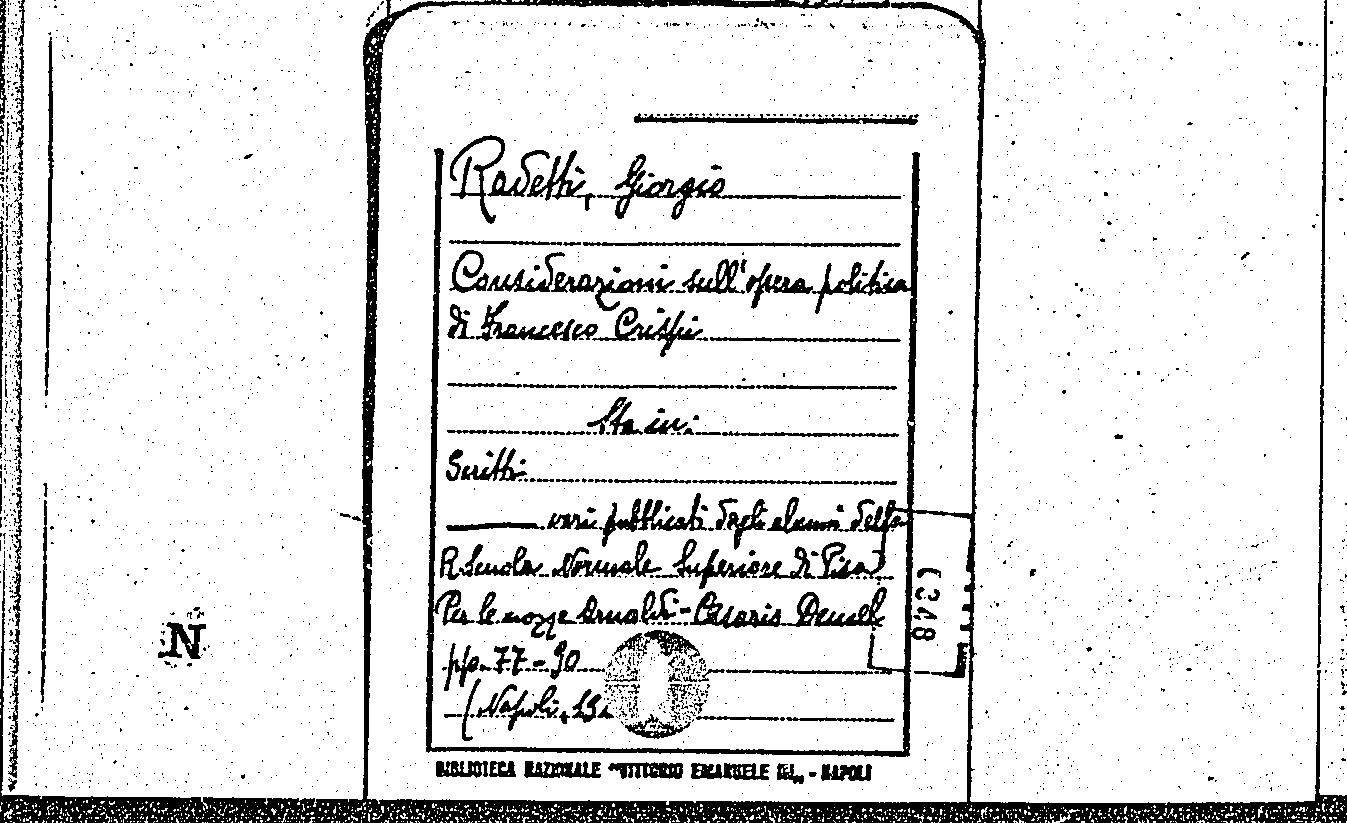 Radetti, Giorgio
Considerazioni sull'opera politica
di Francesco Crispi
Sta in:
Scritti
vari pubblicati dagli alunni della
R. Scuola Normale Superiore di Pisa
Per le nozze Arnaldi - Cesaris Demel
pp. 77-90
(Napoli,
BIBLIOTECA NAZIONALE "VITTORIO EMANUELE III„ - NAPOLI
N